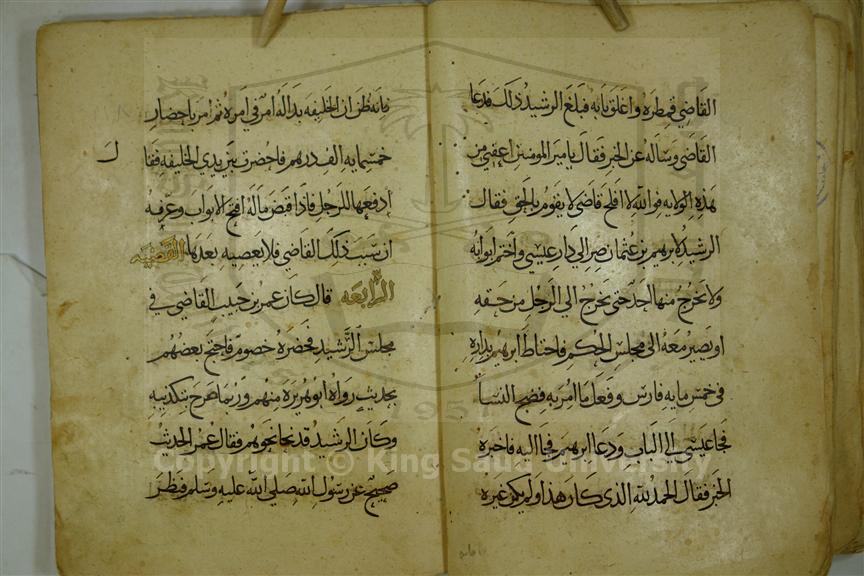 القاضي قمطره واغلق بابه فبلغ الرشيد ذلك فدعا
القاضي وساله عن الخبر فقال يامير المومنين اعفني من
هذه الولايه فوالله لا افلح قاضي لا يقوم بالحق فقال
الرشيد لابرهيم بن عثمان صر الي دار عيسي واختم ابوابه
ولا يخرج منها احد حتي يخرج الي الرجل من حقه
او يصير معه الي مجلس الحكم فاحتاط ابرهيم بداره
في خمس مايه فارس وفعل ما امر به فضج النسا
فجا عيسي الي الباب ودعا ابرهيم فجا اليه فاخبره
الخبر فقال الحمد لله الذي كان هذا ولم يكن غيره
فانه ظن ان الخليفه بدا له امر في امره ثم امر باحضار
خمسمايه الف درهم فاحضرت بين يدي الخليفه فقا
ل
ادفعها للرجل فاذا قبض ماله افتح الابواب وعرفه
ان سبب ذلك القاضي فلا يعصيه بعدها القضيه
الرابعه قال كان عمر بن حبيب القاضي في
مجلس الرشيد فحضره خصوم فاحتج بعضهم
بحديث رواه ابو هريرة منهم وربما صرح بتكذيبه
وكان الرشيد قد نحا نحوهم فقال عمر الحديث
صحيح عن رسول الله صلي الله عليه وسلم فنظر
Copyright © King Saud University
1957